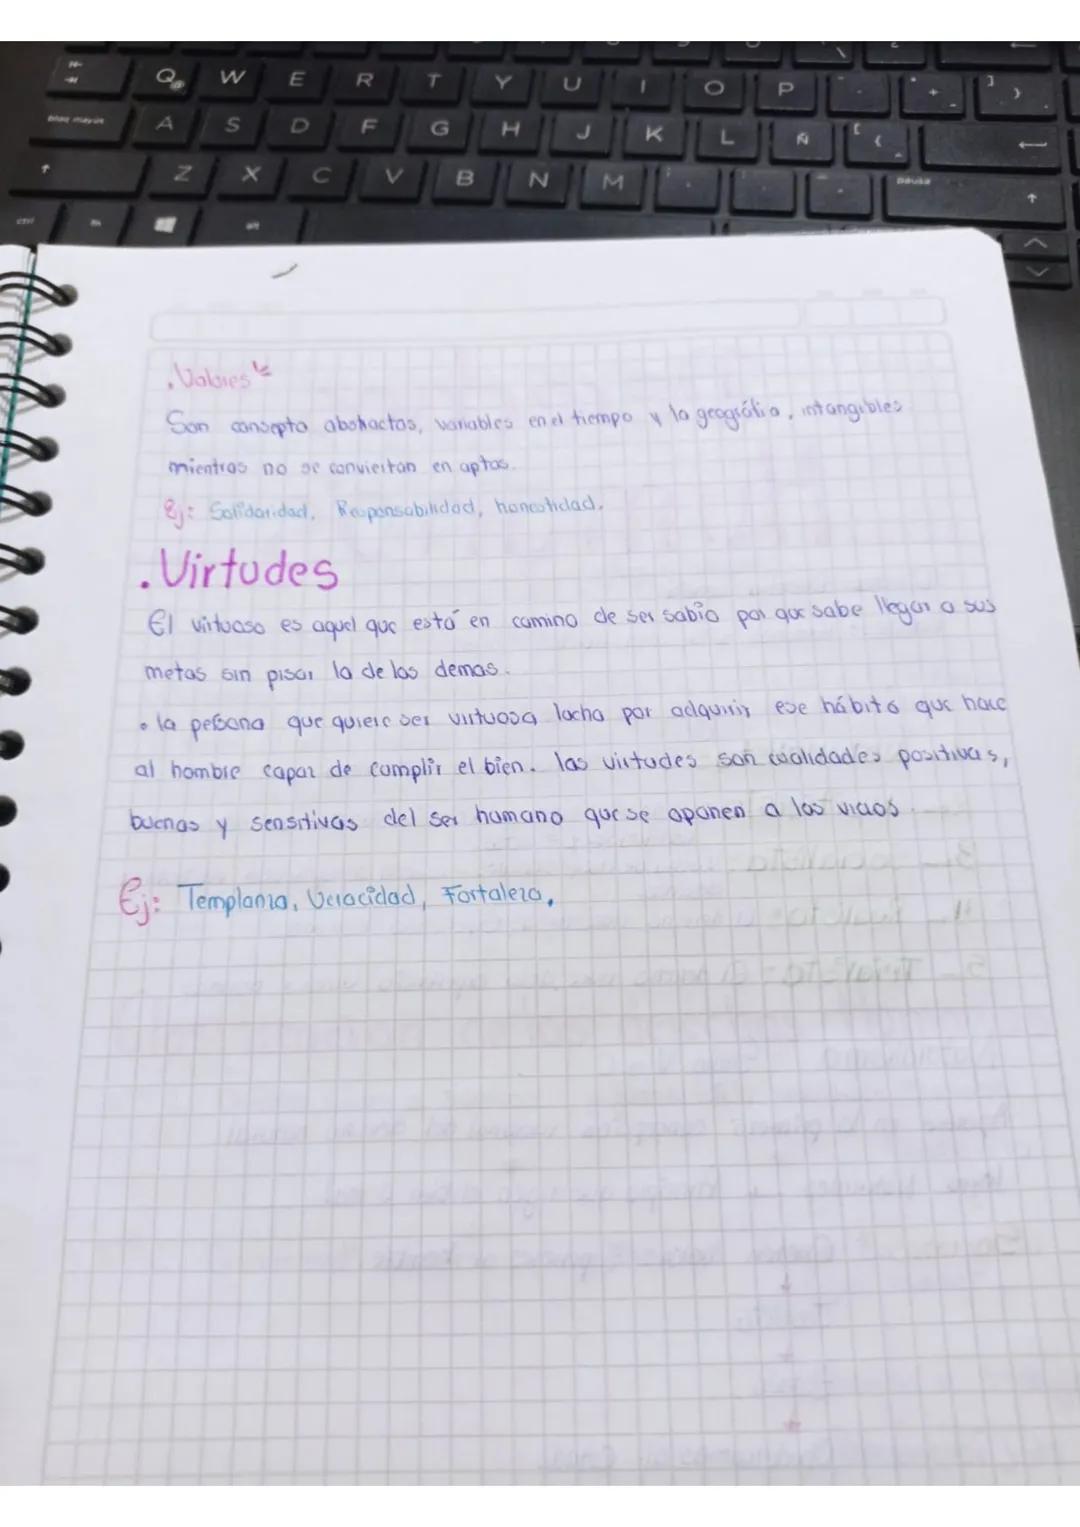 Q W E R T Y U I O P
bloq mayús A S D F G H J K L Ñ
Z X C V B N M pausa
ctrl fn alt
. Valores
Son consepto abstractos, variables en el tiempo y la geográfia, intangibles
mientras no se conviertan en aptos.
Ej: Solidaridad, Responsabilidad, honestidad.
. Virtudes
El virtuoso es aquel que está en camino de ser sabio por que sabe llegar a sus
metas sin pisar la de los demas.
• la persona que quiere ser virtuosa lucha por adquirir ese hábito que hace
al hombre capaz de cumplir el bien. las virtudes son cualidades positivas,
buenas y sensitivas del ser humano que se oponen a los vicios.
Ej: Templanza, Veracidad, Fortaleza,